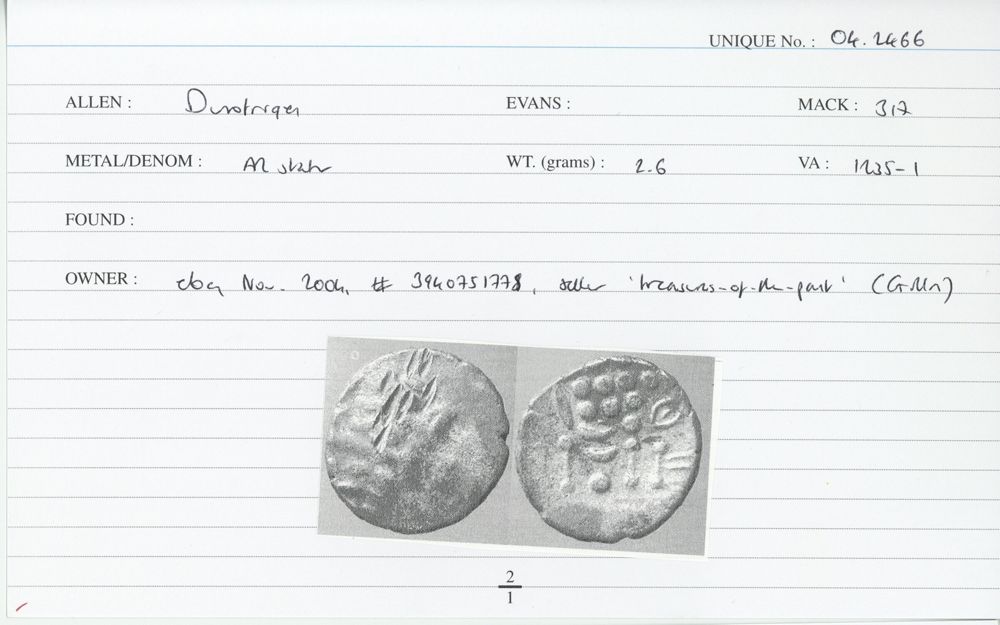 UNIQUE No. : 04.2466
ALLEN : Durotriges EVANS : MACK : 317
METAL/DENOM : AR stater WT. (grams) : 2.6 VA : 1235-1
FOUND :
OWNER : ebay Nov. 2004, # 3940751778, seller 'treasures-of-the-past' (GMn)
2
1